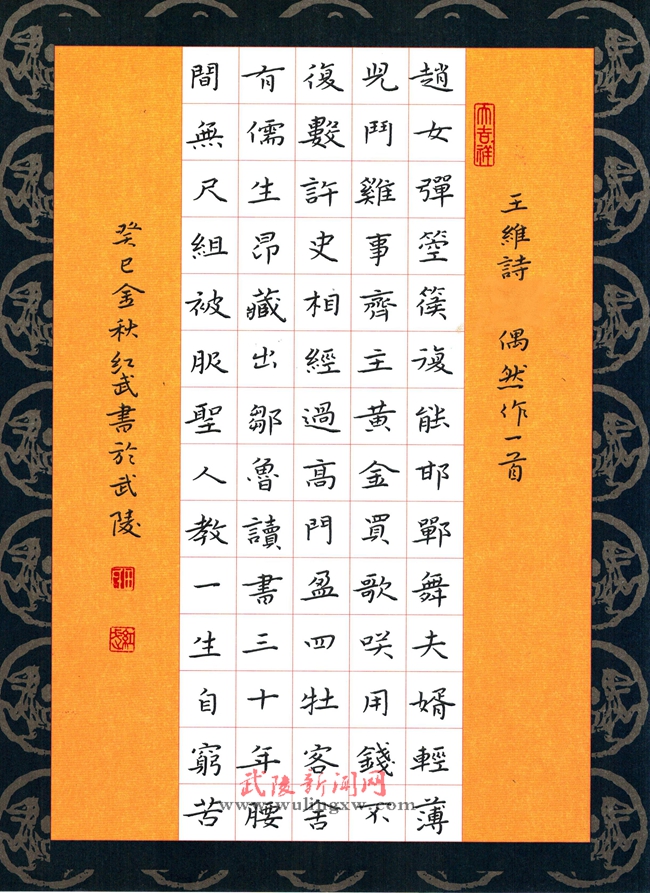 大吉祥
王維詩 偶然作一首
趙女彈箜篌復能邯鄲舞夫婿輕薄
兒鬥雞事齊主黃金買歌咲用錢不
復數許史相經過高門盈四牡客舍
有儒生昂藏出鄒魯讀書三十年腰
間無尺組被服聖人教一生自窮苦
癸巳金秋红武書於武陵
武陵新闻网
www.wulingxw.com